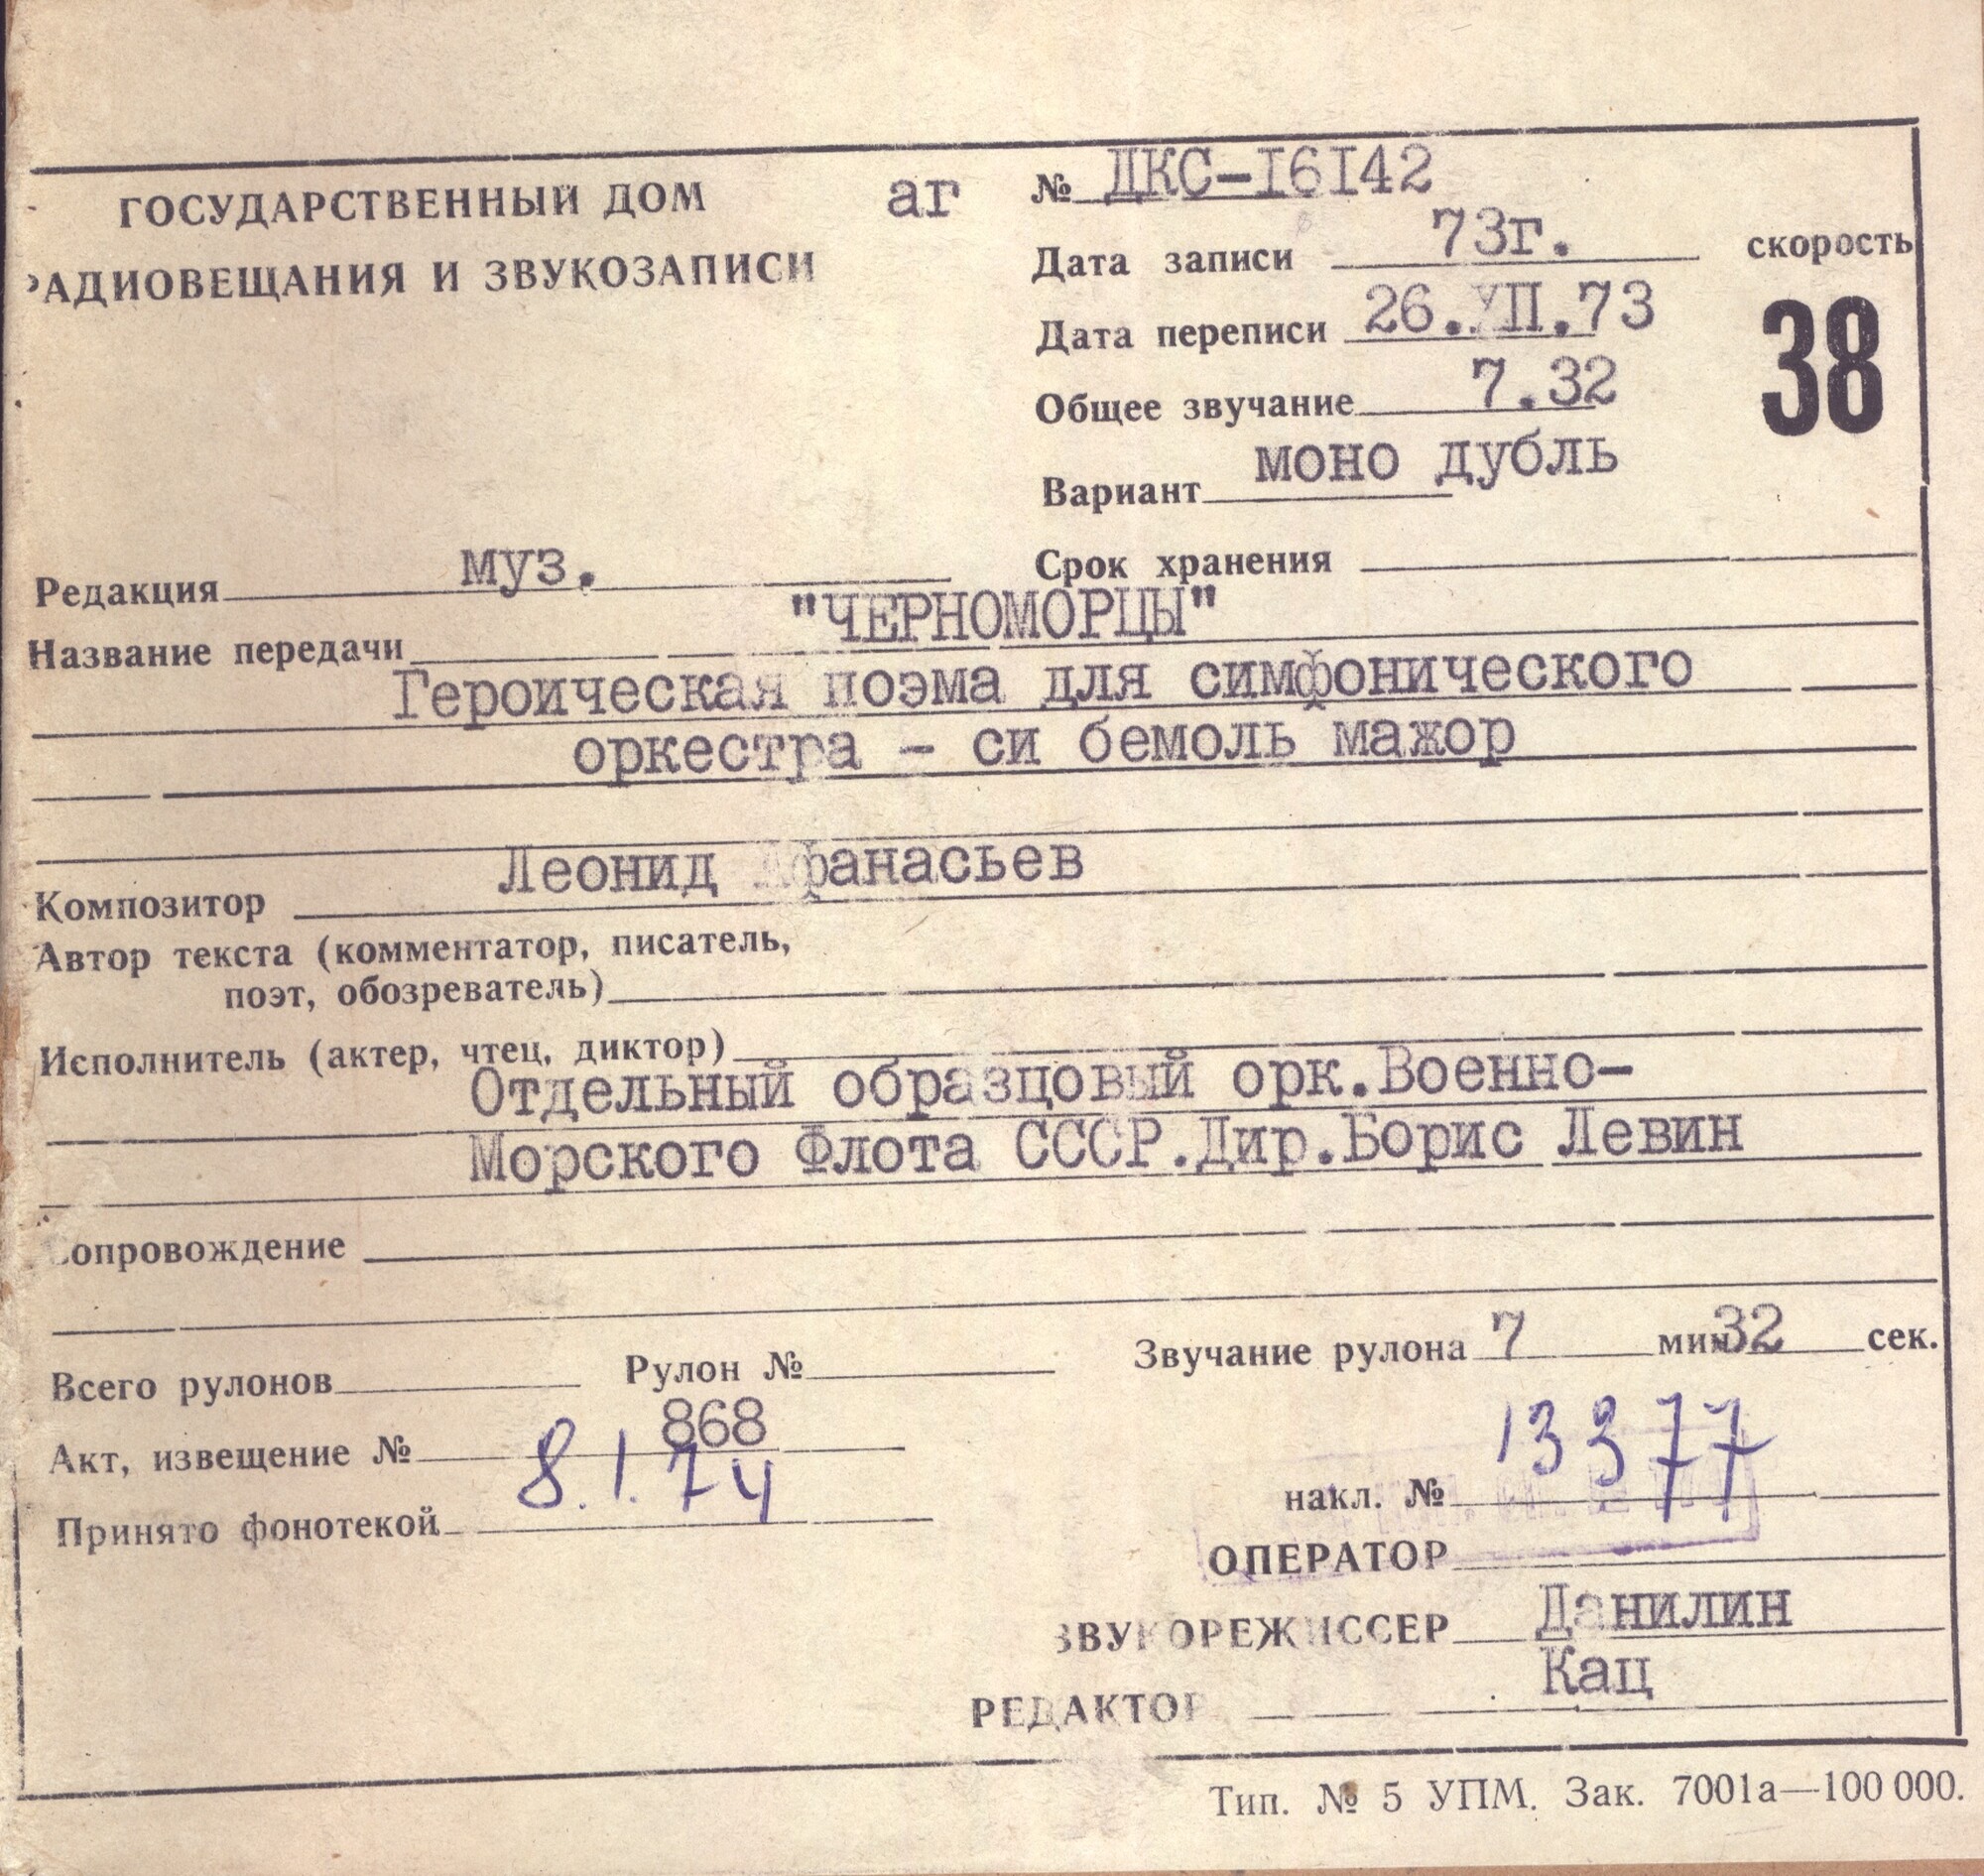 ГОСУДАРСТВЕННЫЙ ДОМ аг № ДКС-I6I42
РАДИОВЕЩАНИЯ И ЗВУКОЗАПИСИ
Дата записи 73г. скорость
Дата переписи 26.УII.73 38
Общее звучание 7.32
Вариант моно дубль
Редакция муз. Срок хранения
Название передачи "ЧЕРНОМОРЦЫ"
Героическая поэма для симфонического
оркестра - си бемоль мажор
Композитор Леонид Афанасьев
Автор текста (комментатор, писатель,
поэт, обозреватель)
Исполнитель (актер, чтец, диктор)
Отдельный образцовый орк.Военно-
Морского Флота СССР.Дир.Борис Левин
Сопровождение
Всего рулонов Рулон № Звучание рулона 7 мин 32 сек.
Акт, извещение № 868
Принято фонотекой 8.1.74
накл. № 13377
ОПЕРАТОР
ЗВУКОРЕЖИССЕР Данилин
РЕДАКТОР Кац
Тип. № 5 УПМ. Зак. 7001а—100 000.